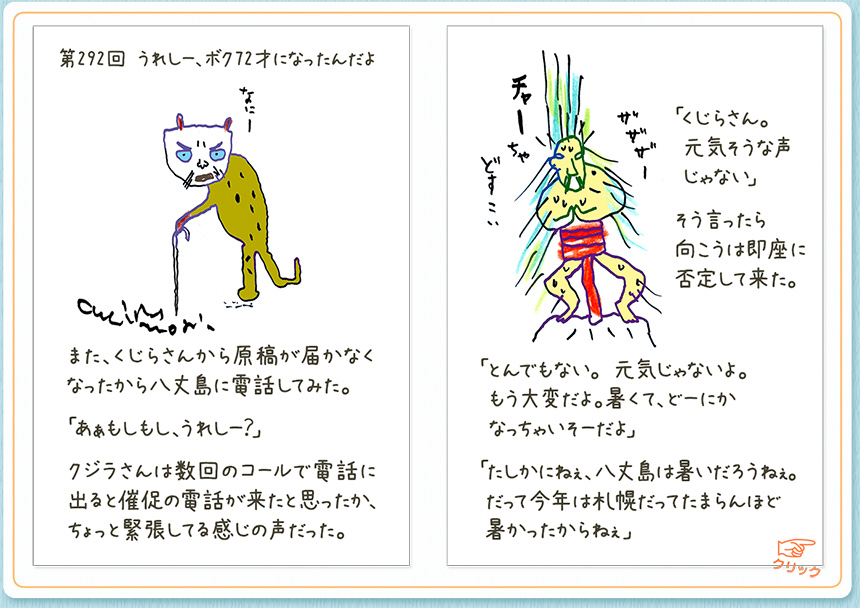 第292回 うれしー、ボク72才になったんだよ
なにー
また、くじらさんから原稿が届かなく
なったから八丈島に電話してみた。
「あぁもしもし、うれしー?」
クジラさんは数回のコールで電話に
出ると催促の電話が来たと思ったか、
ちょっと緊張してる感じの声だった。
チャーちゃ
ザザザー
どすこい
「くじらさん。
元気そうな声
じゃない」
そう言ったら
向こうは即座に
否定して来た。
「とんでもない。 元気じゃないよ。
もう大変だよ。暑くて、どーにか
なっちゃいそーだよ」
「たしかにねぇ、八丈島は暑いだろうねぇ。
だって今年は札幌だってたまらんほど
暑かったからねぇ」
クリック